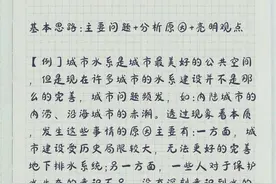 基本思路:主要问题+分析原因+亮明观点
【例】城市水系是城市最美好的公共空
间,但是现在许多城市的水系建设并不是那
么的完善,城市问题频发,如:内陆城市的
内涝、沿海城市的赤潮。透过现象看本
质,发生这些事情的原因主要有:一方面,城
市建设受历史局限较大,无法更好的完善
地下排水系统;另一方面,一些人对于保护